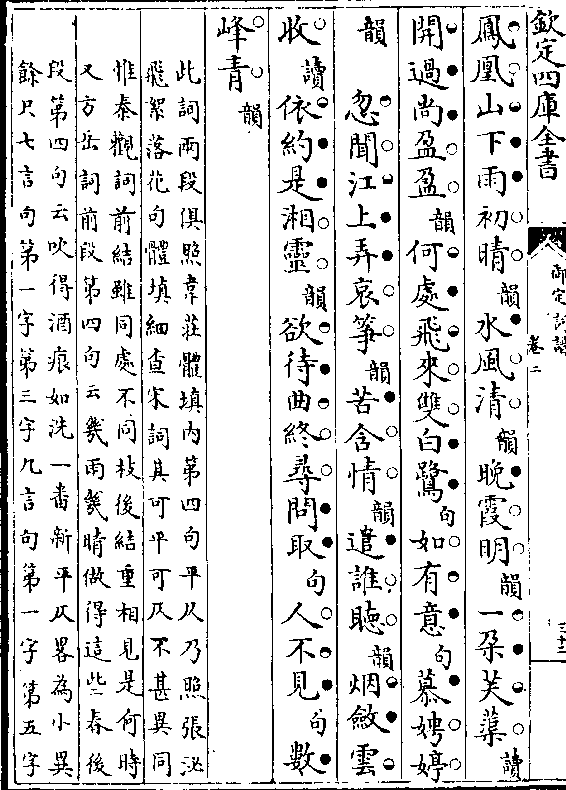 欽定四庫全書
御定詞譜
卷二
三十二
鳳凰山下雨初晴韻水風清韻晚霞明韻一朶芙蕖讀
開過尚盈盈韻何處飛來雙白鷺句如有意句慕娉婷
韻　忽聞江上弄哀箏韻苦含情韻遣誰聽韻烟斂雲
收讀依約是湘靈韻欲待曲終尋問取句人不見句數
峰青韻
此詞兩段俱照韋莊體填内第四句平仄乃照張泌
飛絮落花句體填細查宋詞其可平可仄不甚異同
惟秦觀詞前結雖同處不同枝後結重相見是何時
又方岳詞前段第四句云幾雨幾晴做得這些春後
段第四句云吹得酒痕如洗一番新平仄畧為小異
餘只七言句第一字第三字九言句第一字第五字